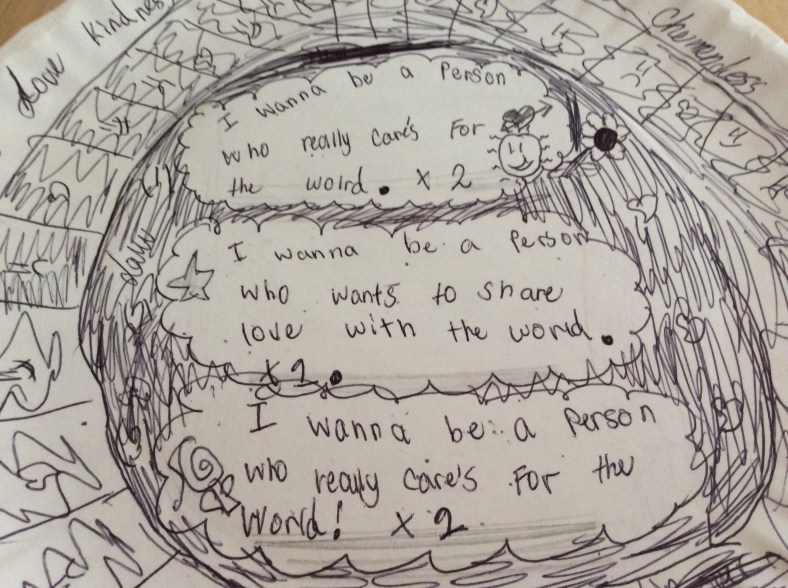 Love Kindness
I wanna be a Person
who really care's For
the wolrd. x 2
I wanna be a Person
who wants to share
love with the world.
x2.
I wanna be a Person
who really Care's For the
World! x 2